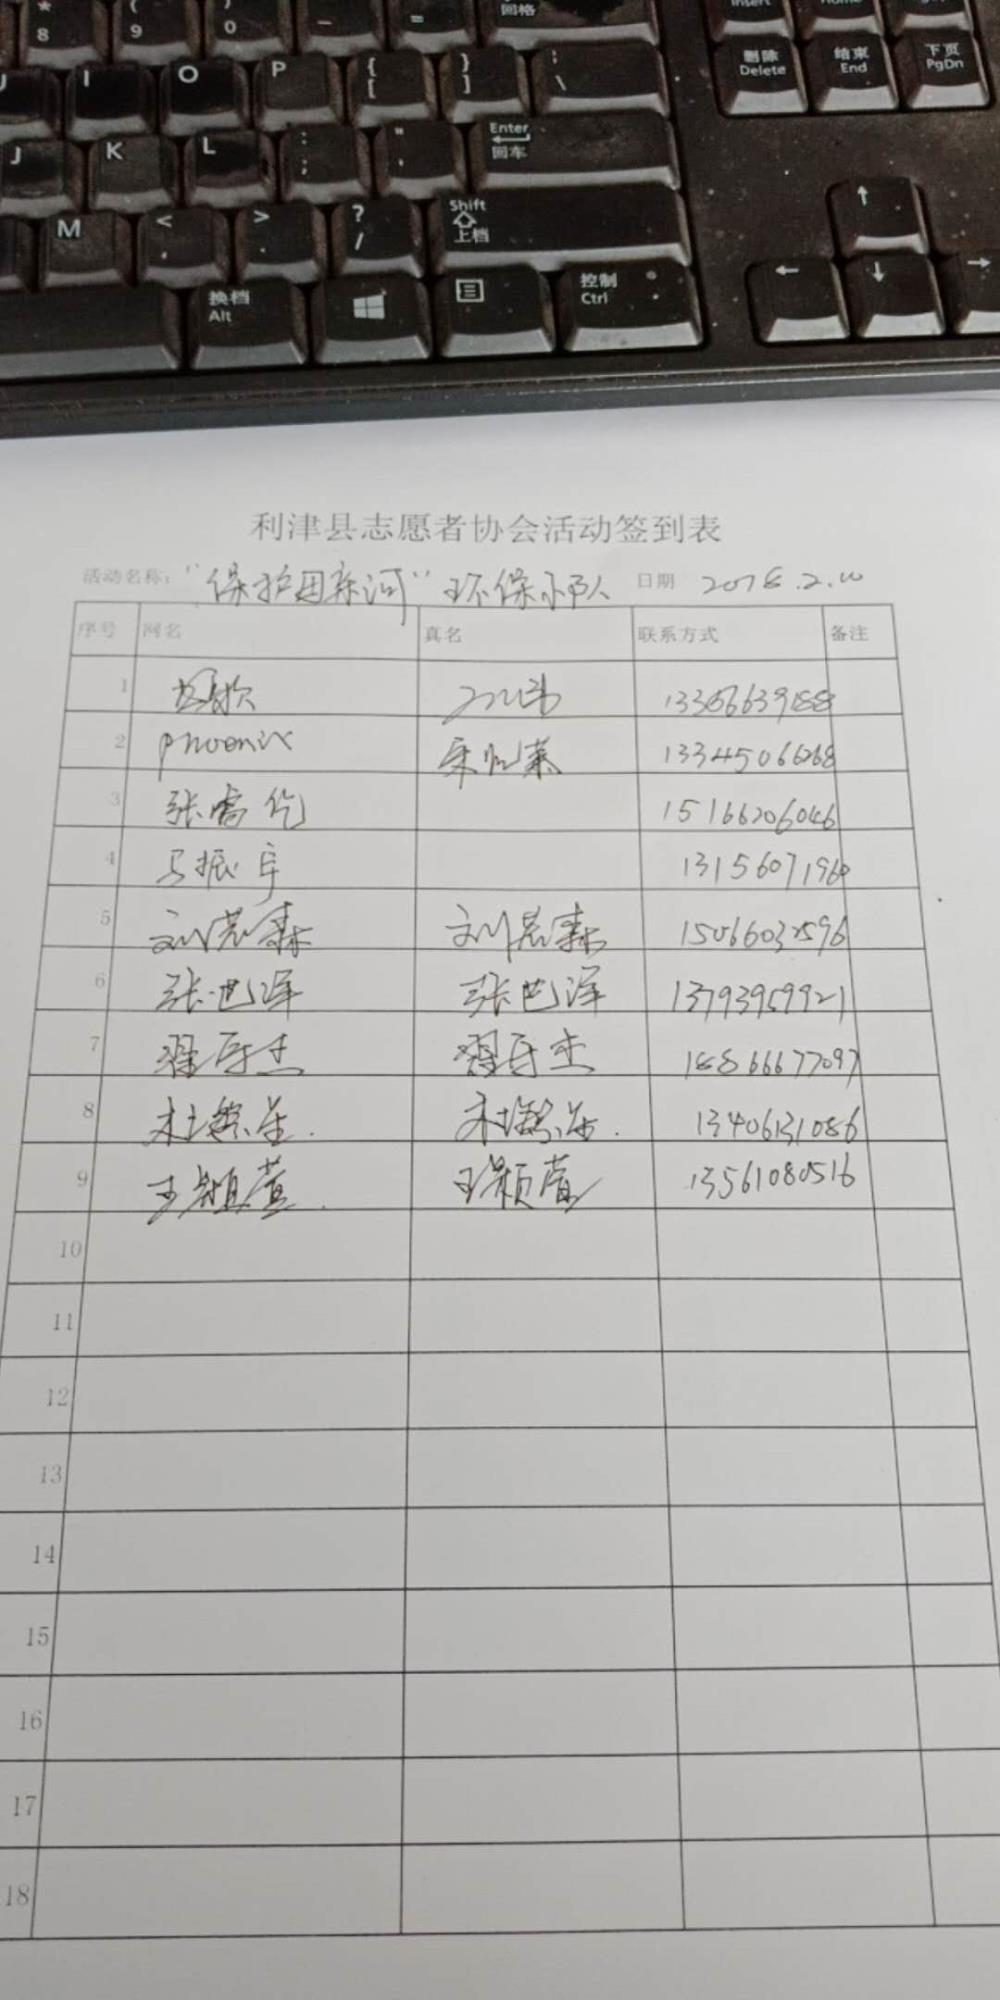 * 8 ( 9 ) 0 _ - + = 回格 Insert Home
I O P { [ } ] \ 删除 Delete 结束 End 下页 PgDn
J K L : ; " ' Enter 回车
M < , > . ? / Shift 上档 ↑
换档 Alt 控制 Ctrl ← ↓ →
利津县志愿者协会活动签到表
活动名称: "保护母亲河" 环保小队 日期 2018.2.10
序号 网名 真名 联系方式 备注
1
2 phoenix 13345066268
3 张 15166206046
4 马振宇 13156071960
5 刘 森 刘 森 15066032596
6 张世泽 张世泽 13793959921
7 翟 杰 翟 杰 18866677097
8 杜 杜 13406131086
9 王颖萱 王颖萱 13561080516
10
11
12
13
14
15
16
17
18